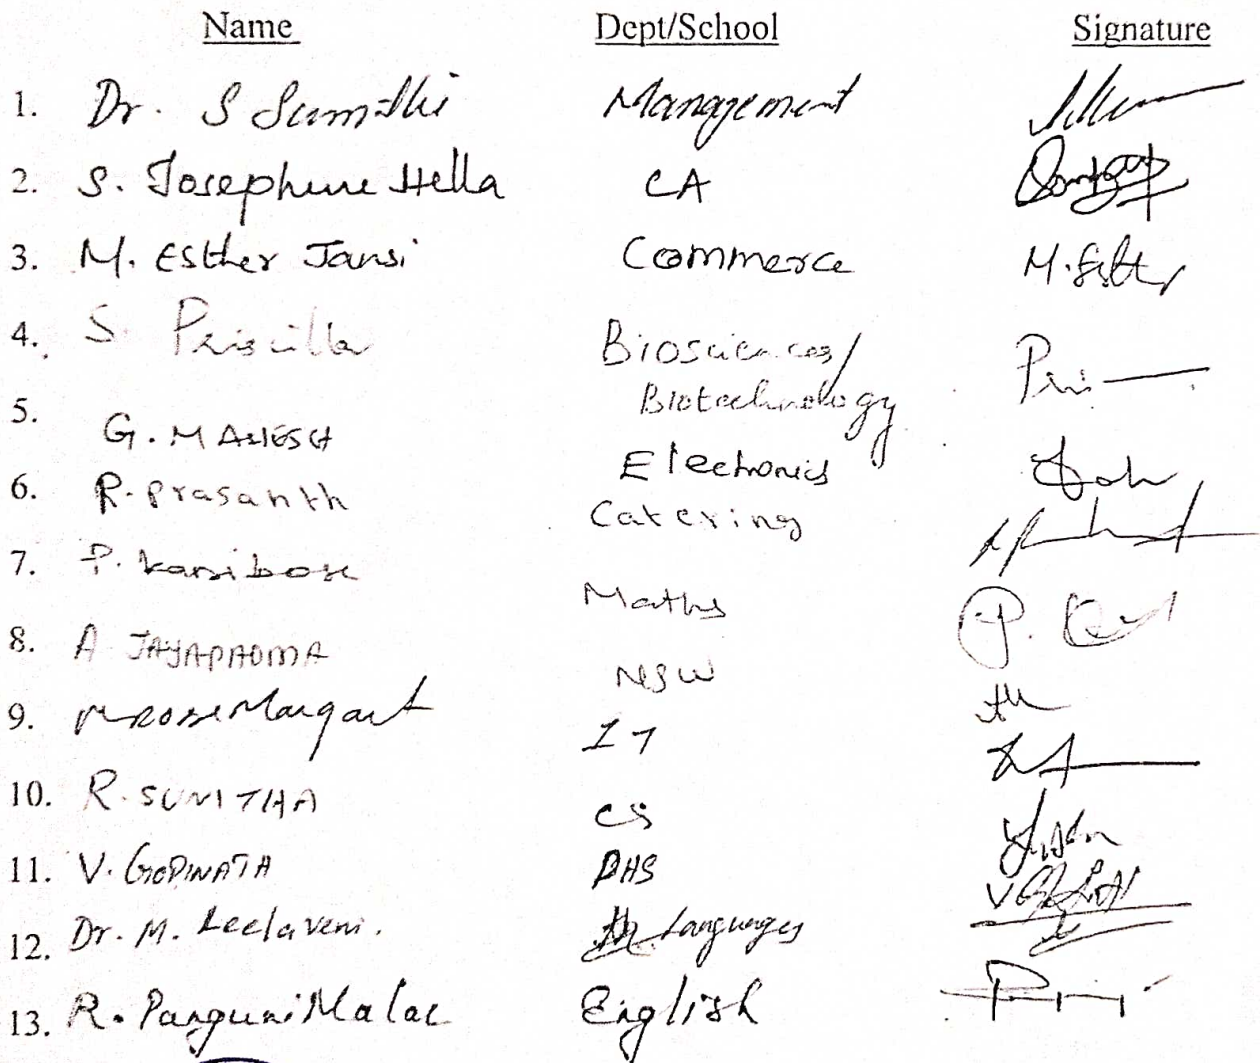 Name Dept/School Signature
1. Dr. S Sumathi Management
2. S. Josephine Stella CA
3. M. Esther Jansi Commerce M. Esther
4. S. Priscilla Biosciences/ Pri
Biotechnology
5. G. MAHESH Electronics
6. R. Prasanth Catering
7. P. Kasibose Maths
8. A JAYAPADMA MSW
9. M Rose Margaret IT
10. R. SUNITHA CS
11. V. GOPINATH PHS
12. Dr. M. Leelaveni. Languages
13. R. Panguni Malar English